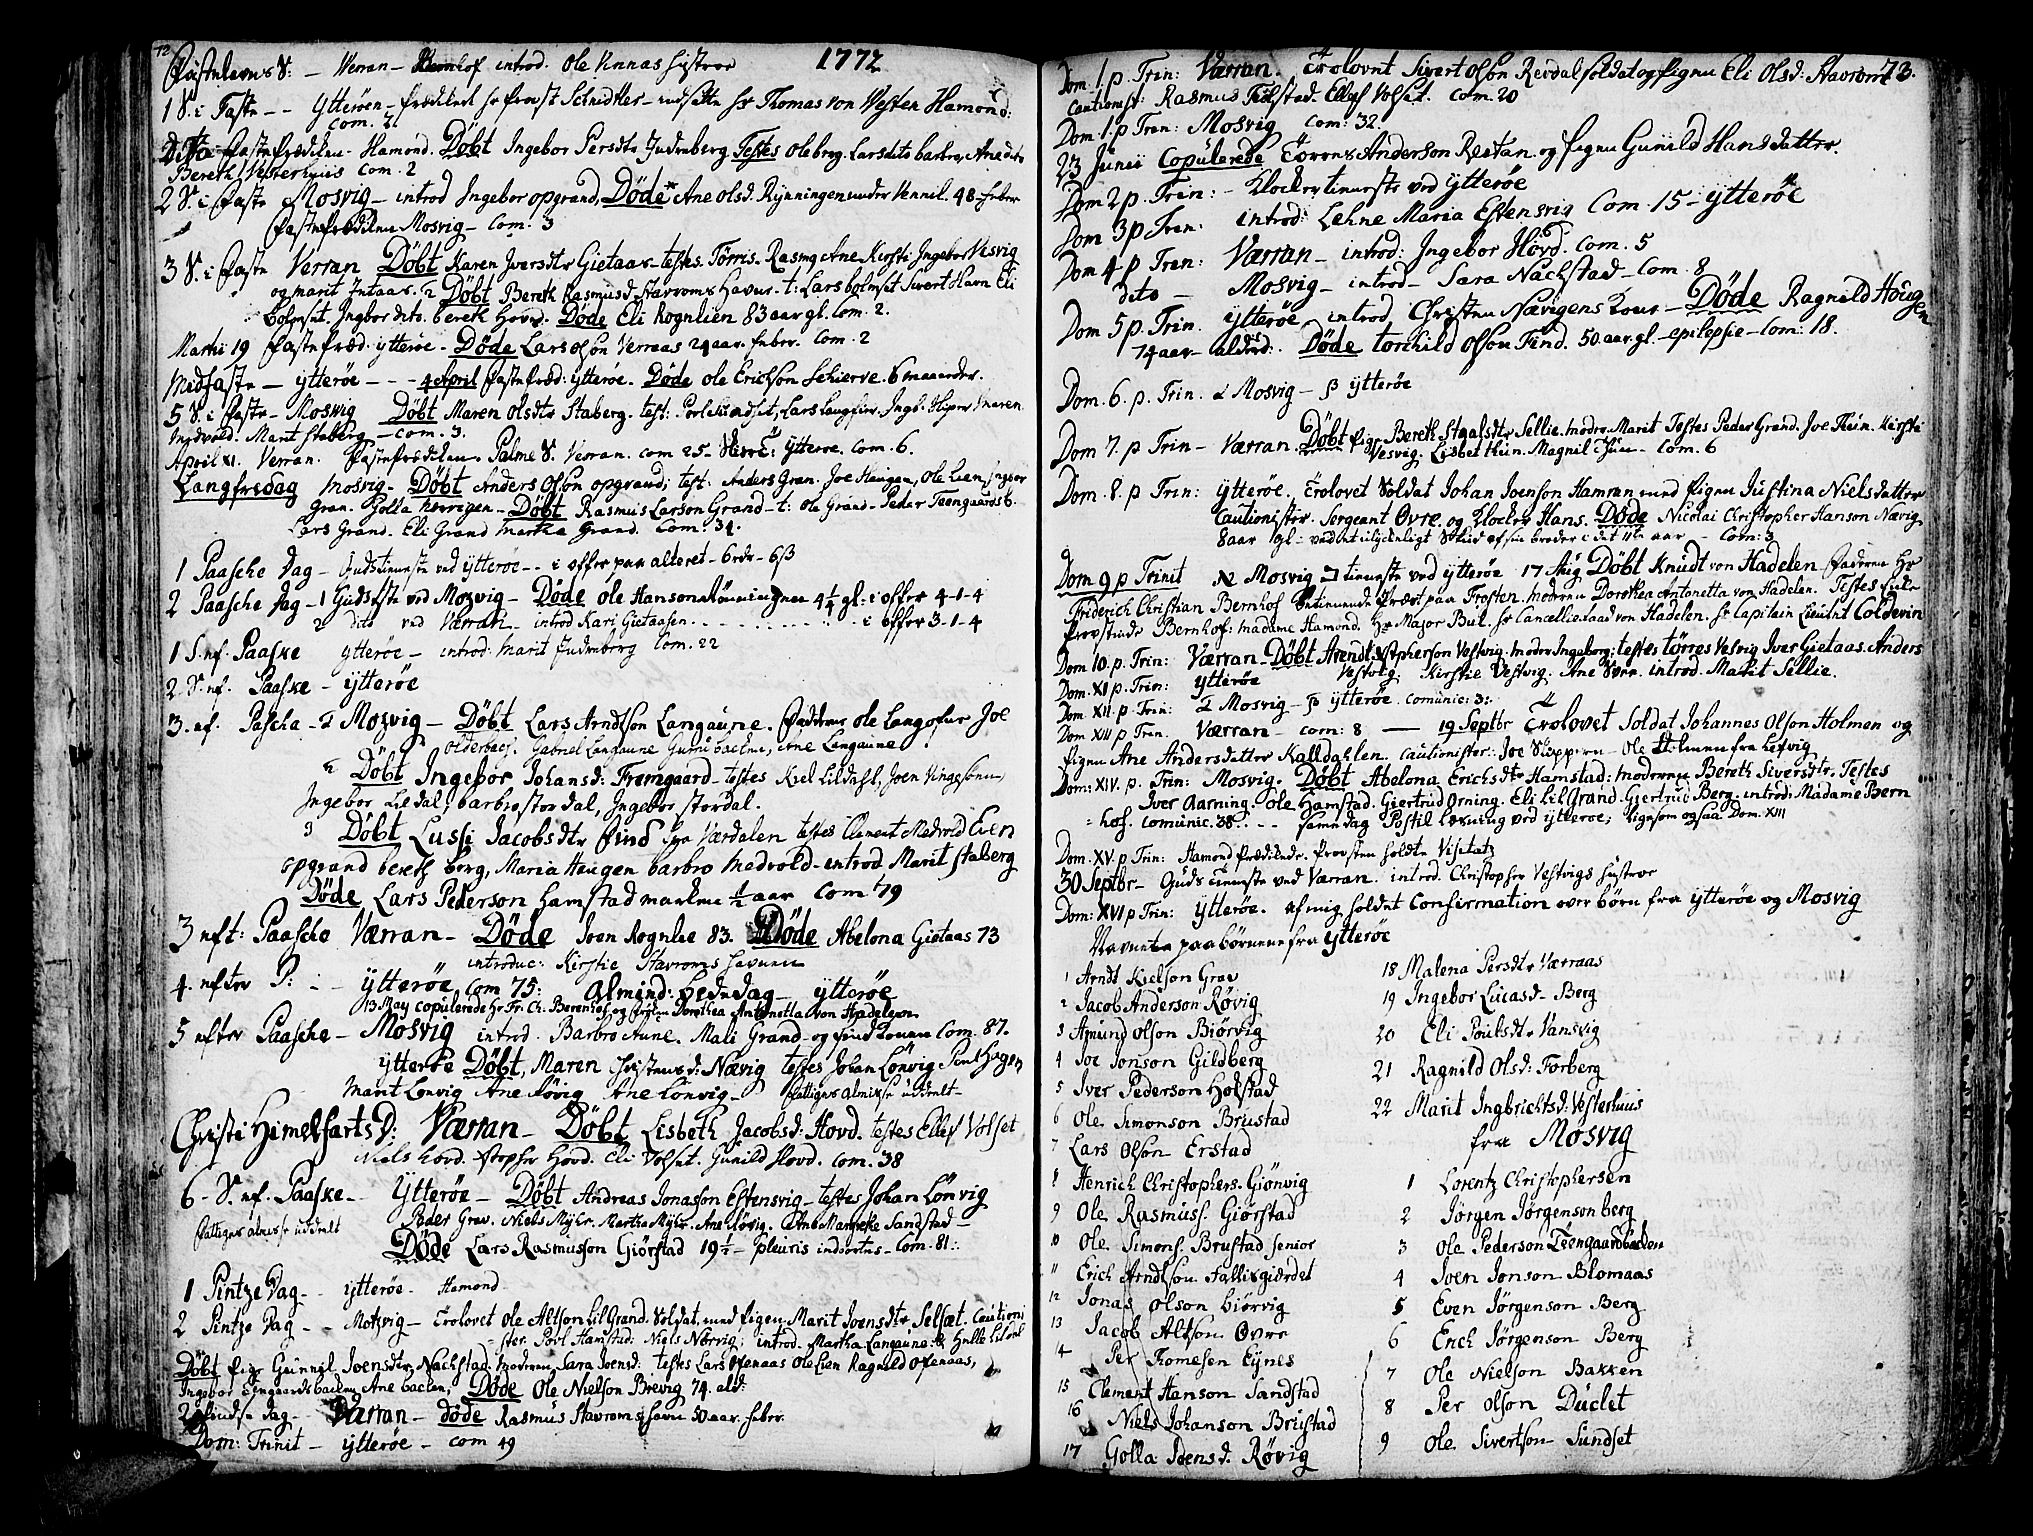 72
1772
Fastelavns S: – Verran – Bernhof introd. Ole Vinnas hustroe
1 S. i Faste – – Ytterøen – prædiked hr Provst Schnidtler – indsatte hr Thomas von Westen Hamond:
com. 2.
Dito Fasteprædiken – Hamond. Döbt Ingebor Persdtr Judenberg Testes Ole brog. Lars dito barbroe, Ane dito
Bereth Vesterhuus com. 2
2 S. i Faste Mosvig – introd Ingebor opgrand, Döde Ane olsd. Rynningen under Vennil. 48 – feber
Fasteprædiken Mosvig – Com. 3
3 S. i Faste Verran Döbt Karen Iversdtr Gietaas – testes. Törris. Rasmg Ane Kirsti, Ingebor Vesvig
og marit Intaas. 2 Döbt Bereth Rasmusd. Stavroms Havn. – t: Lars bolnset Sivert Havn Eli
bolnset, Ingbor dito. bereth Hovd. Döde Eli Rognlien 83 aar gl. Com. 2.
Martii 19 Fastepræd: ytterøe – Döde Lars olsön Verraas 24 aar. feber. Com. 2
Medfaste – ytterøe – – – 4 April Fastepræd: ytterøe. Döde ole Erichson Schierve. 6 maaneder.
5 S. i Faste – Moswig Döbt Maren olsdtr Staberg. test: Porl Sundset, Lars Langfur. Ingb. Hipne Maren
Medvold. Marit Staberg – com. 3.
April XI. Verran. Fasteprædiken. Palme S. Verran. com 25 – Skiert: ytterøe. Com. 6.
Langfredag Mosvig – Döbt Anders Olsön opgrand; test: Anders Gran. Joe Haugen, Ole Lien, Ingbor
Gran. Golla Norrigen – Döbt Rasmus Larson Grand – t: Ole Grand – Peder Teengaards b.
Lars Grand. Eli Grand Martha Grand. Com. 34.
1 Paasche Dag – Gudstieneste ved ytterøe – – i offer paa alteret – 6 rdr – 6 ß
2 Paasche Dag – 1 Gudstste ved Mozvig – Döde Ole Hanson Rönningen 4 1/4 gl: i offer 4-1-4
2 dito ved Værran – introd Kari Gietaasen . . . . . . . . . i offer 3-1-4
1 S. ef. Paaske ytterøe – introd: Marit Judenberg Com. 22
2. S. ef. Paaske – ytterøe
3. ef. Pascha – α Mozvig – Döbt Lars Arndtsön Langaune. Faddere Ole Langofur Joe
Gabriel Langaune Guru backen, Ane Langaune.
2 Döbt Ingebor Johansd: Fremgaard – testes Kiel Lildahl, Joen Vingesönn,
Ingebor Lildal, barbro stordal, Ingebor stordal.
3 Döbt Lussi Jacobsdtr Find fra Værdalen testes Clement Medvold Even
opgrand bereth borg, Maria Haugen barbro Medvold – introd Marit staberg
Döde Lars Pederson Hamstad marken 1/2 aar Com 79
3 eft: Paasche Værran – Döde Joen Rognlie 83. Döde Abelona Gietaas 73
introduc: Kirstie Stavroms havnen
4. efter P: – ytterøe Com 75: Almind: Bededag – ytterøe
13 May copulerede Hr Fr. Ch. Berenhof og Frøken Dorothea Antonetta von Hadelen
5 efter Paasche – Mosvig introd. Barbro Aune. Mali Grand – og find konen Com. 87.
ytterøe Döbt, Maren Christensd: Nævig testes Johan Lönvig
Marit Lonvig Ane Rövig Ane Lönvig – Fattiges Almisse uddelt –
Christi Himelfarts D: Værran – Döbt Lisbeth Jacobsd: Hovd. testes Ellef Volset
Niels hovd. Stopher Hovd. Eli Volset. Gunild Hovd. Com. 38
6 – S. ef. Paaske – ytterøe – Döbt Andreas Jonasson Estensvig – testes Johan Lönvig
Fattiges almisse uddelt
Peder Grav. Niels Myhr. Martha Myhr. Ane Rövig. Ane Margreke Sandstad –
Döde Lars Rasmusson Giörstad 19 1/2 – pleuris – Com. 81:
1 Pintze Dag – ytterøe – Hamond
2 Pintze Dag – – Motzvig – Trolovet Ole Altson Lil Grand. Soldat, med Pigen Marit Joensdtr Selsæt. Cautioni
ster. Porl Hamstad. Niels Nærvig; introd. Martha Langaune & Helle Lildal
Döbt Pige Guinngl Joensdtr Nachstad. moderen Sara Joensd: testes Lars Ofenaas Ole Lien Ragnild Ofenaas,
Ingebor Teengaardsbacken Ane backen, Döde Ole Nielson Brevig 74. ald:
2 Pindse Dag – Værran – döde Rasmus Stavroms havn 50 aar. feber.
Dom: Trinit – ytterøe – com 49
73.
Dom. 1. p. Trin: Værran. Trolovet Sivert olsön Revdal soldat og Pigen Eli Olsd: Stavrom
Cautionist: Rasmus Tiilstad. Ellef Volset. Com. 20
Dom. 1. p Tren: Mosvig Com: 32
23 Junii Copulerede Törens Anderson Restan og Pigen Gunild Hansdatter.
Dom 2 p. Trin: – Klocker tieneste ved ytterøe
Dom 3 p Tren: introd: Lehne Maria Estensvig Com. 15 – ytterøe
Dom 4 p Tren: Værran – introd: Ingebor Hovd. Com. 5
dito – Mosvig – introd – Sara Nachstad – Com. 8
Dom 5 p. Trin. ytterøe introd Christen Nævigens kone – Döde Ragnild Haugen
74 aar – alderd: Döde torchild olson Find. 50. aar. gl. – epilepsie – Com: 18.
Dom. 6. p. Trin. α Mosvig – β ytterøe
Dom 7. p Trin – Værran. Döbt Pige Bereth Staalsdtr Sellie. modr. Marit Testes Peder Grand. Joe Thun. Kirsti
Vesvig. Lisbet thun. Magnil Thun – Com. 6
Dom. 8. p Tren: ytterøe. Trolovet Soldat Johan Joenson Hamran med Pigen Justina Nielsdatter
Cautionister. Sergeant Ovre og Klocker Hans. Döde Nicolai Christopher Hanson Nævig
8 aar gl: ved et ulyckeligt skud af sin broder i det 11te aar – Com: 3
Dom 9 p Trinit α Mosvig tieneste ved ytterøe 17 Aug Döbt Knudt von Hadelen Faderen Hr
Friderich Christian Bernhof betienende Præst paa Frosten. moderen Dorothea Antonetta von Hadelen. Testes Enke
Provstinde Bernhof: madame Hamond. Hr Major Bul. hr Cancellieraad von Hadelen. hr Capitain Lieutnt Coldevin
Dom 10. p. Trin: Værran – Döbt Arendt Xstopherson Vestvig. moder Ingeborg; testes törres Vesvig Iver Gietaas. Anders
Dom. XI p. Trin: ytterøe Vestvig. Kirstie Vestvig. Ane Svee. introd. Marit Sellie.
Dom. XII. p. Trin: α Mosvig – β ytterøe. comunic: 3:
Dom XIII p Tren. Værran – com: 8 — 19 Septbr Trolovet Soldat Johannes Olson Holmen og
Pigen Ane Andersdatter Kalldahlen. cautionister: Joe Sleppern – Ole Holmen fra Lexvig
Dom: XIV. p. Trin: Mosvig. Döbt Abelona Erichsdtr Hamstad: moderen Bereth Siversdtr. Testes
Iver Aarning. Ole Hamstad. Giertrud Orning. Eli Lil Grand. Giertrud Berg. introd: Madame Bern
= hof. Comunic. 38. . – – samme dag Postil læsning ved ytterøe; ligesom ogsaa Dom. XIII
Dom. XV. p Trin: Hamond prædikede. Provsten holdte Visitatz
30 Septbr – Guds Tieneste ved Værran. introd. Christopher Vestvigs hustroe
Dom: XVI p Trin: ytterøe. af mig holdet Confirmation over børn fra ytterøe og Mosvig
Navnene paa børnene fra ytterøe
1 Arndt Kielson Grav
2 Jacob Anderson Rövig
3 Amund Olson Biörvig
4 Joe Jonson Gildberg
5 Iver Pederson Hokstad
6 Ole Simonson Brustad
7 Lars Olson Erstad
8 Henrich Christophers. Giönvig
9 Ole Rasmuss. Giörstad
10 Ole Simons. Brustad senior
11 Erich Arndtson Fallisgiærdet
12 Jonas Olson biörvig
13 Jacob Altson Ovre
14 Per Tomesen Eynes
15 Clement Hanson Sandstad
16 Niels Johanson Brustad
17 Golla Joensd. Rövig
18 Malena Persdtr Værraas
19 Ingebor Lucasd – Berg
20 Eli Poulsdtr Vansvig
21 Ragnild Olsd: Forberg
22 Marit Ingbrichtsd: Vesterhuus
fra Mosvig
1 Lorentz Christophersen
2 Jörgen Jörgenson berg
3 Ole Pederson Teengaardsbacken
4 Joen Jonson Blomaas
5 Even Jörgenson Berg
6 Erich Jörgenson Berg
7 Ole Nielson Bakken
8 Per Olson Duclet
9 Ole Sivertson Sundset